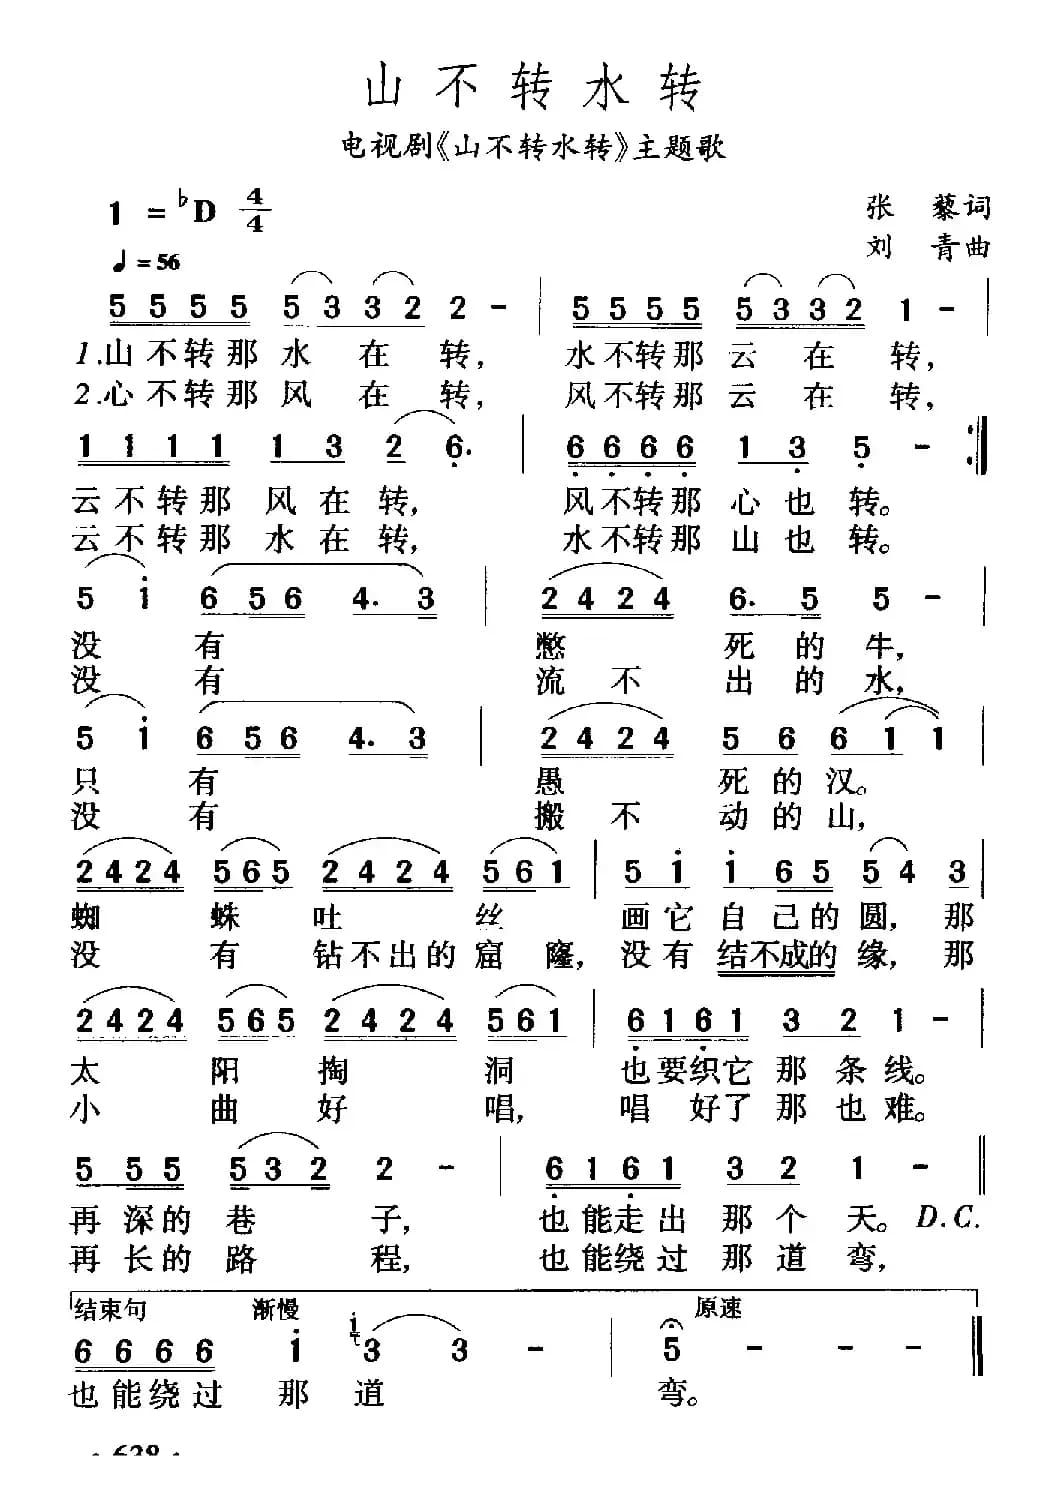 山不转水转
电视剧《山不转水转》主题歌
1 = ♭D 4/4
张 藜词
刘 青曲
♩= 56
5 5 5 5 5 3 3 2 2 - | 5 5 5 5 5 3 3 2 1 - |
1.山不转那水在转，水不转那云在转，
2.心不转那风在转，风不转那云在转，
1 1 1 1 1 3 2 6. | 6 6 6 6 1 3 5 - :|
云不转那风在转，风不转那心也转。
云不转那水在转，水不转那山也转。
5 i 6 5 6 4. 3 | 2 4 2 4 6. 5 5 - |
没有憋死的牛，
没有流不出的水，
5 i 6 5 6 4. 3 | 2 4 2 4 5 6 6 1 1 |
只有愚死的汉。
没有搬不动的山，
2 4 2 4 5 6 5 2 4 2 4 5 6 1 | 5 i i 6 5 5 4 3 |
蜘蛛吐丝画它自己的圆，那
没有钻不出的窟窿，没有结不成的缘，那
2 4 2 4 5 6 5 2 4 2 4 5 6 1 | 6 1 6 1 3 2 1 - |
太阳掏洞也要织它那条线。
小曲好唱，唱好了那也难。
5 5 5 5 3 2 2 - | 6 1 6 1 3 2 1 - ||
再深的巷子，也能走出那个天。D.C.
再长的路程，也能绕过那道弯，
结束句 渐慢 原速
6 6 6 6 i i 3 3 - | 5 - - - ||
也能绕过那道弯。
· 638 ·